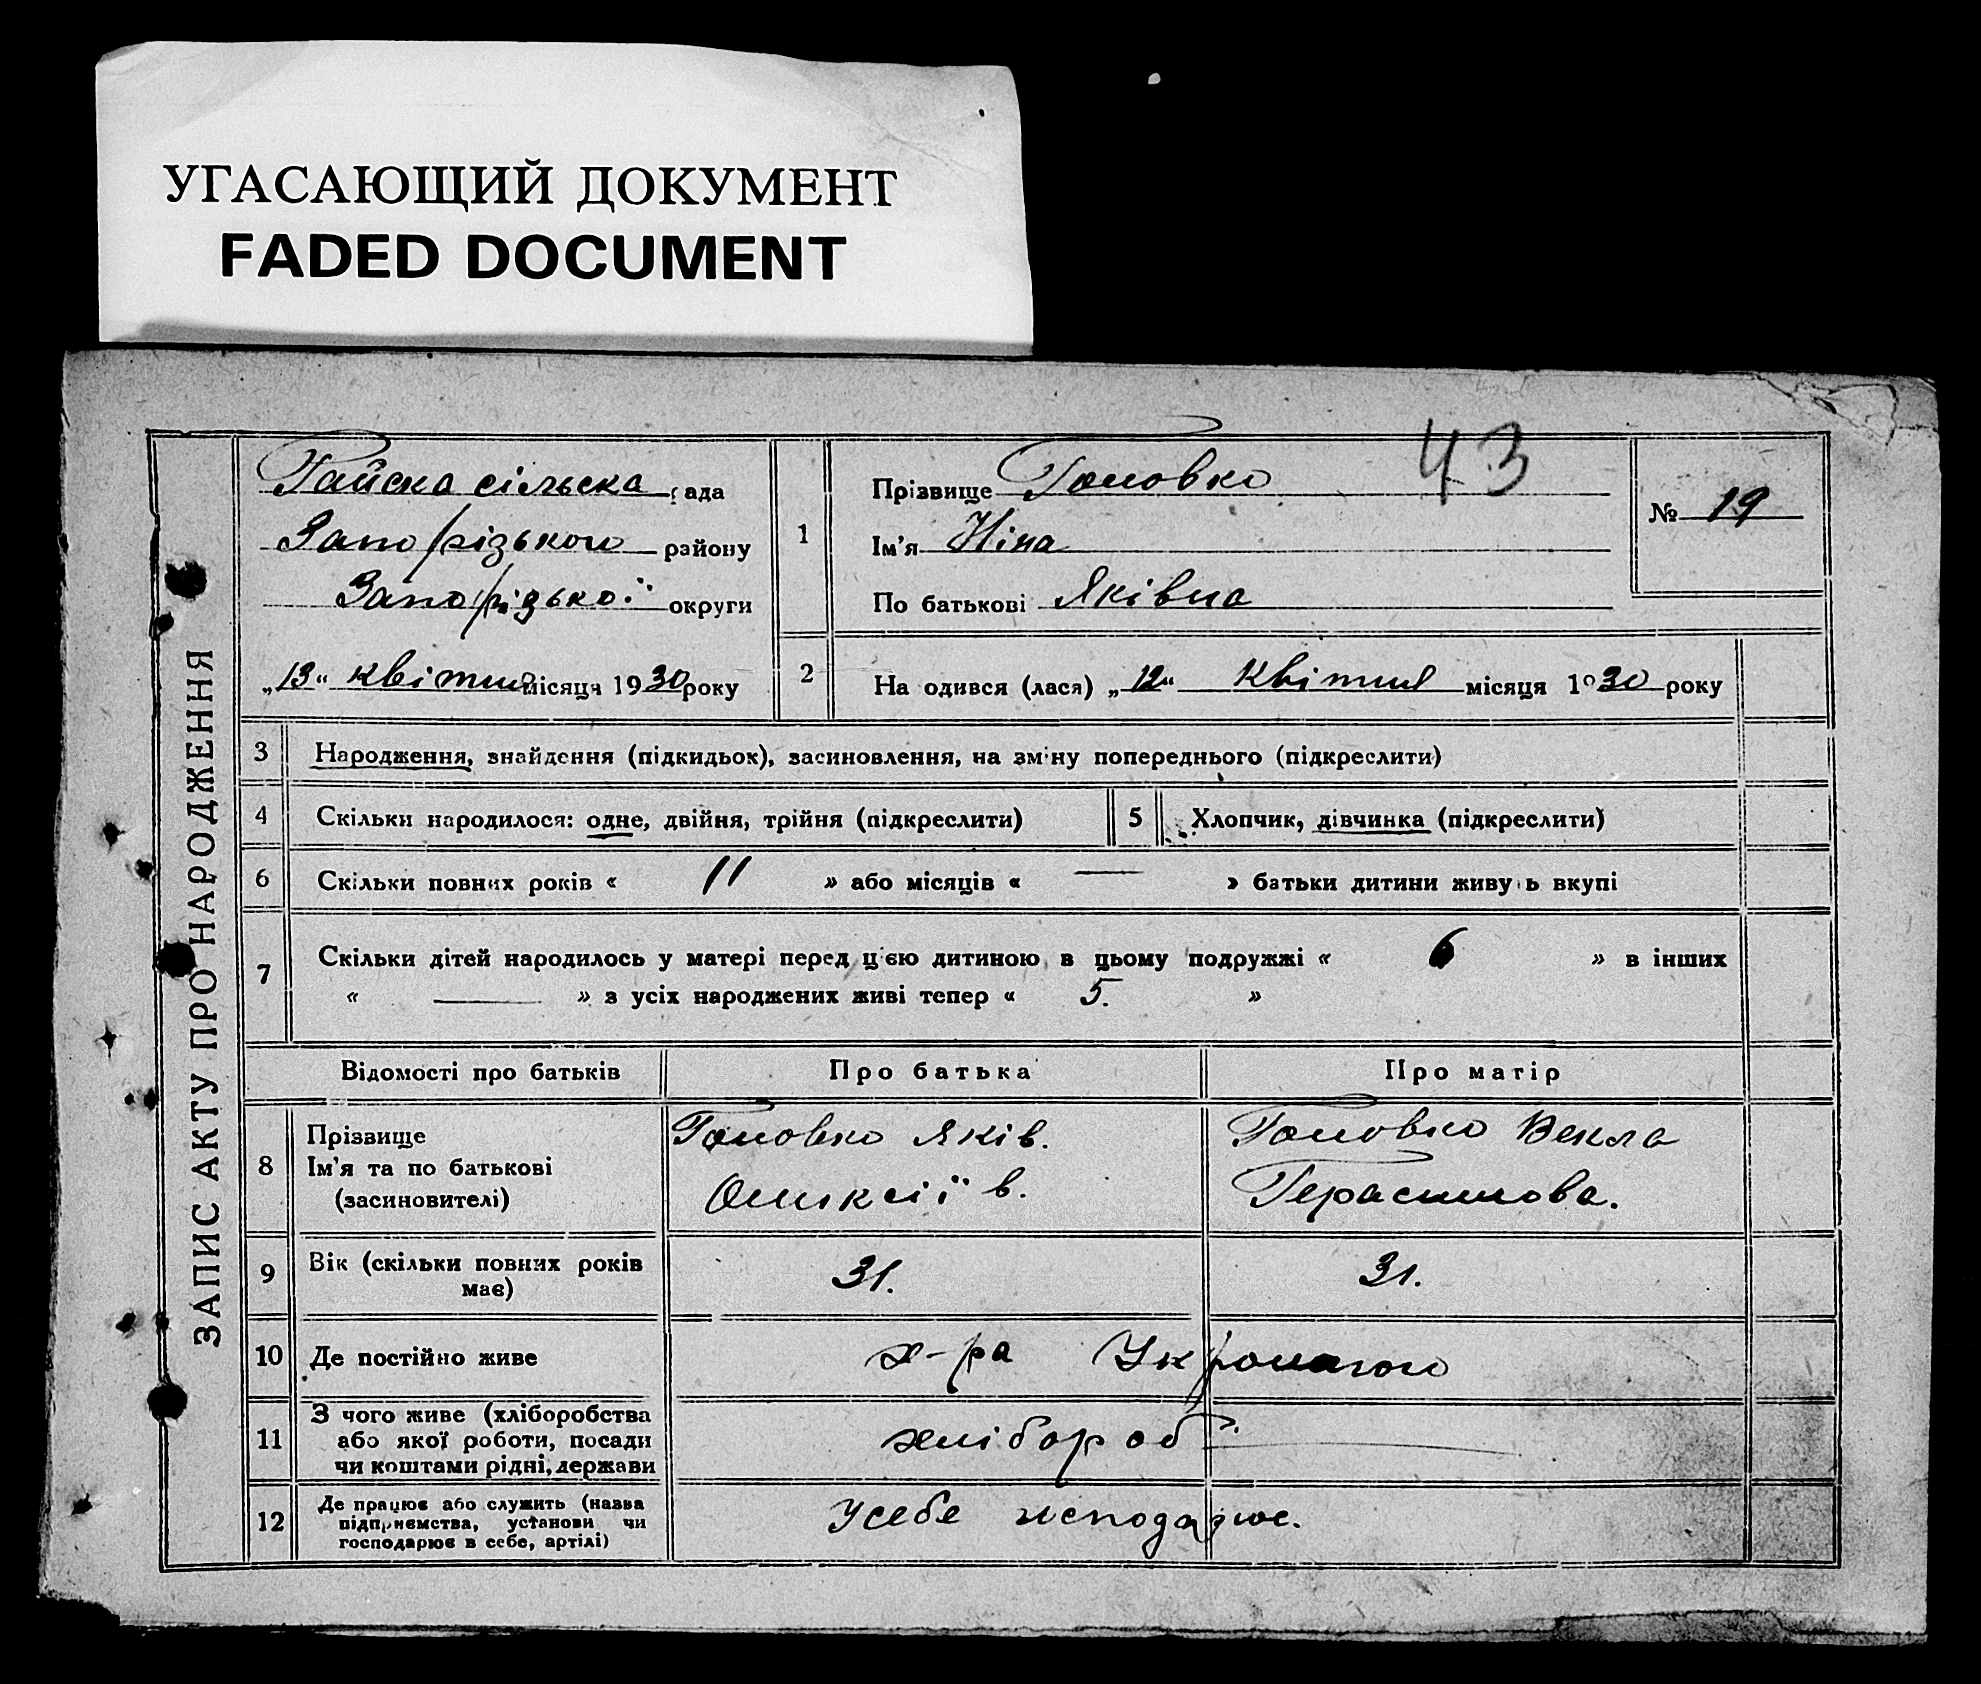 УГАСАЮЩИЙ ДОКУМЕНТ
FADED DOCUMENT
43
ЗАПИС АКТУ ПРО НАРОДЖЕННЯ
сільська рада
Запорізького району
Запорізької округи
„13“ квітня місяця 1930 року
1
Прізвище Головко
Ім'я Ніна
По батькові Яківна
№ 19
2
На одився (лася) „12“ квітня місяця 1930 року
3 Народження, знайдення (підкидьок), засиновлення, на зміну попереднього (підкреслити)
4 Скільки народилося: одне, двійня, трійня (підкреслити)
5 Хлопчик, дівчинка (підкреслити)
6 Скільки повних років « 11 » або місяців « — » батьки дитини живуть вкупі
7 Скільки дітей народилось у матері перед цією дитиною в цьому подружжі « 6 » в інших
« — » з усіх народжених живі тепер « 5. »
Відомості про батьків Про батька Про матір
8 Прізвище
Ім'я та по батькові
(засиновителі)
Головко Яків.
Оликсіїв.
Головко Векла
Герасимова.
9 Вік (скільки повних років
має)
31. 31.
10 Де постійно живе х-ра
11 З чого живе (хліборобства
або якої роботи, посади
чи коштами рідні, держави
хлібороб
12 Де працює або служить (назва
підприємства, установи чи
господарює в себе, артілі)
усебе